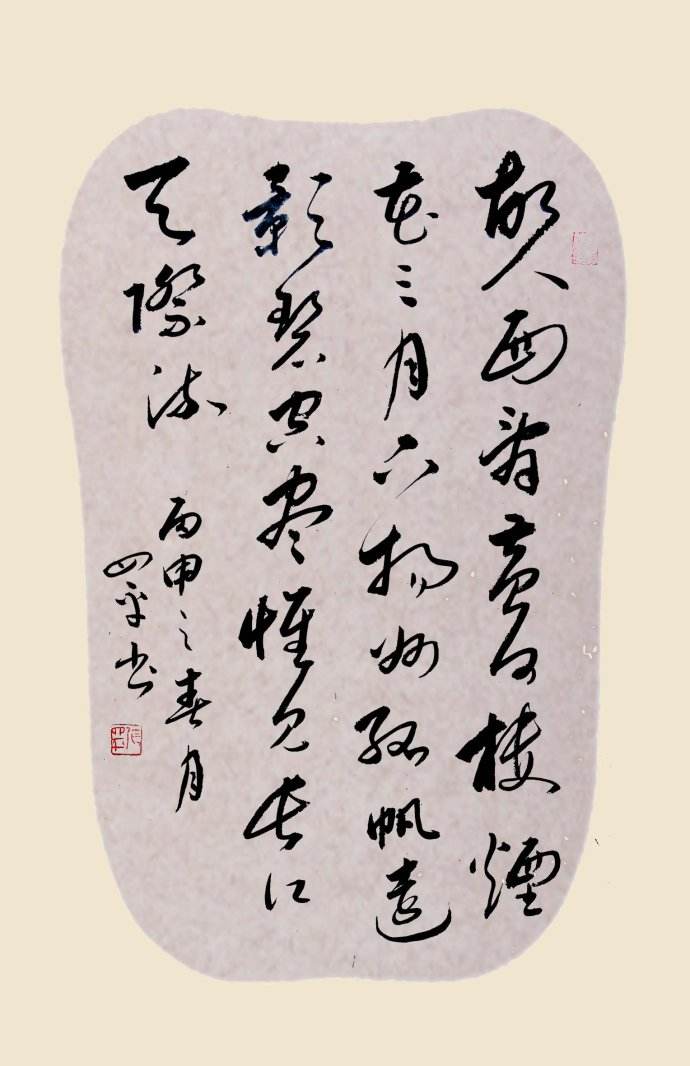 故人西辞黄鹤楼煙
花三月下扬州孤帆遠
影碧空尽惟见长江
天際流
丙申之春月
四平书